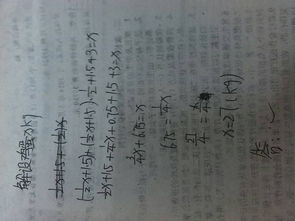 解设蛋xKg
(½x+1.5)+(½x+1.5)·½+1.5+3=x
½x+1.5+¼x+0.75+1.5+3=x
¾x+6.75=x
6.75=¼x
x=27(kg)
答:~